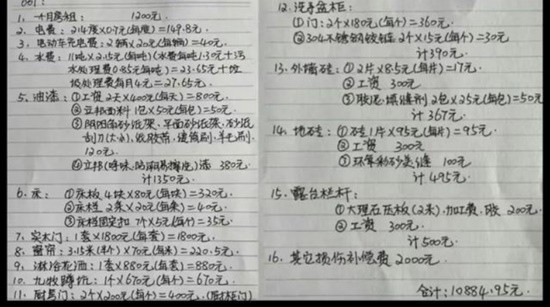 1. 一个月房租: 1200元.
2. 电费: 214度×0.7元(每度)=149.8元.
3. 电动车充电费: 2辆×20元(每辆)=40元.
4. 水费: 11吨×2.15元(每吨)(水费每吨1.30元+污
水处理费0.85元每吨)=23.65元+垃
圾处理费每月4元=27.65元.
5. 油漆: ①工资 2天×400元(每天)=800元.
②立邦面料 1包×50元(每包)=50元.
③阴阳角砂纸架、平面砂纸架、砂纸
刮刀(大小)、收胶带、羊毛刷.
120元.
④立邦漆 380元.
计1350元.
6. 床: ①床板 4块×80元(每块)=320元.
②床档 2条×20元(每条)=40元.
③床档固定扣 7个×5元(每个)=35元.
7. 实木门: 1套×1800元(每套)=1800元.
8. 窗帘: 3.15米×70元(每米)=220.5元.
9. 淋浴花洒: 1套×880元(每套)=880元.
10. 九牧蹲坑: 1个×670元(每个)=670元.
11. 厨房门: 2个×200元(每个)=400元.
12. 洗手盆柜:
①门: 2个×180元(每个)=360元.
②304不锈钢铰链 2个×15元(每个)=30元
计390元.
13. 外墙砖: ①2片×8.5元(每片)=17元.
②工资 300元
③胶泥、填缝剂 2包×25元(每包)=50元
计367元.
14. 地砖: ①砖1片×95元(每片)=95元.
②工资 300元
③环氧彩砂美缝 100元
计495元.
15. 露台栏杆:
①大理石压板(2米)、加工费、胶 200元.
②工资 300元.
计500元.
16. 其它损伤补偿费 2000元.
合计: 10884.95元.